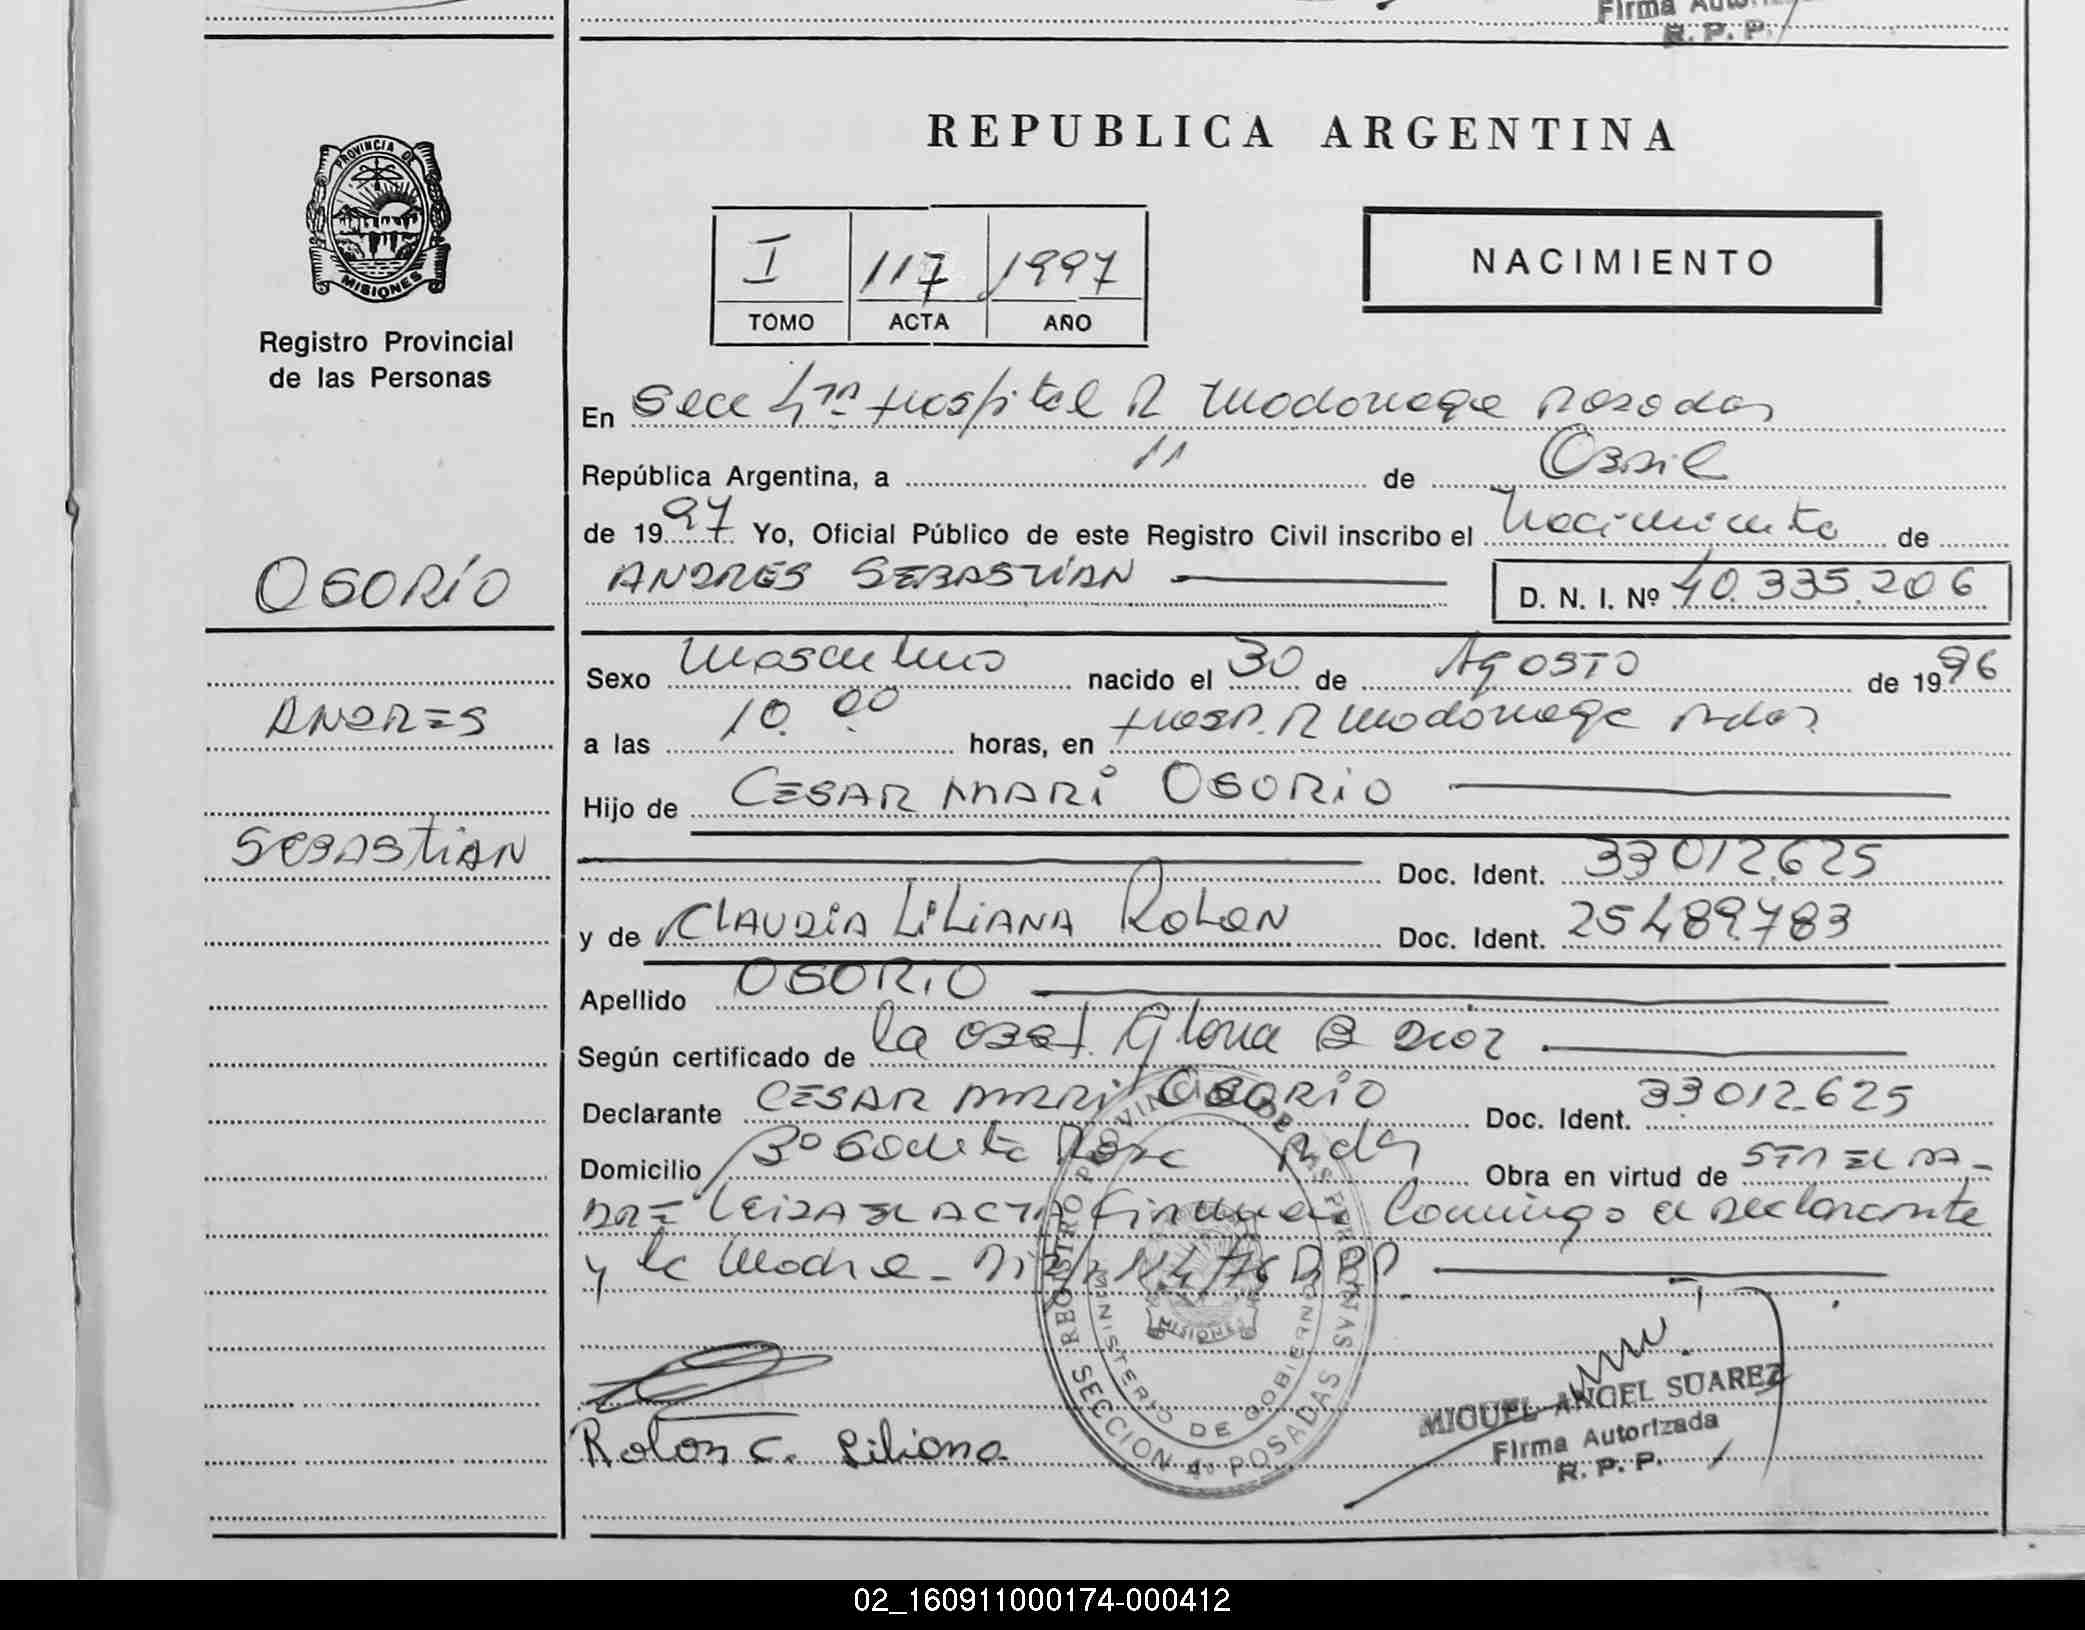 Firma Autorizada
R. P. P.
PROVINCIA DE
MISIONES
Registro Provincial
de las Personas
OSORIO
ANDRES
SEBASTIAN
REPUBLICA ARGENTINA
I 117 1997
TOMO ACTA AÑO
NACIMIENTO
En Secc 4ta Hospital R Madariaga Posadas
República Argentina, a 11 de Abril
de 1997 Yo, Oficial Público de este Registro Civil inscribo el Nacimiento de
ANDRES SEBASTIAN D. N. I. Nº 40.335.206
Sexo Masculino nacido el 30 de Agosto de 1996
a las 10.00 horas, en Hosp. R Madariaga Pdas
Hijo de CESAR MARI OSORIO
Doc. Ident. 33012625
y de CLAUDIA LILIANA ROLON Doc. Ident. 25489783
Apellido OSORIO
Según certificado de la obst. Gloria B Diaz
Declarante CESAR MARI OSORIO Doc. Ident. 33012625
Domicilio Pdas Obra en virtud de
LEIDA EL ACTA Firman Conmigo el declarante
y la Madre
REGISTRO PROVINCIAL DE LAS PERSONAS
MINISTERIO DE GOBIERNO
MISIONES
SECCION 4º POSADAS
Rolon C. Liliana
MIGUEL ANGEL SUAREZ
Firma Autorizada
R. P. P.
02_160911000174-000412